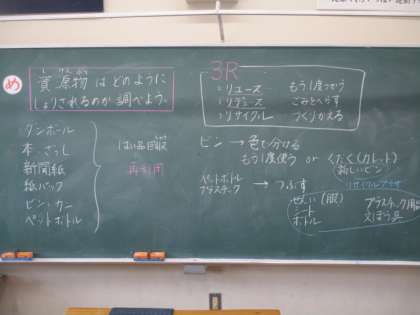 め
しげんぶつ
資源物はどのように
しょりされるのか調べよう。
ダンボール
本、ざっし
新聞紙
紙パック
ビン・カン
ペットボトル
はい品回収
再利用
3R
リユース もう1度つかう
リデュース ごみをへらす
リサイクル つくりかえる
ビン → 色で分ける
もう1度使う or くだく(カレット)
新しいビン
ペットボトル
プラスチック → つぶす
リサイクルプラザ
せんい(服)
シート
ボトル
プラスチック用品
文ぼう具